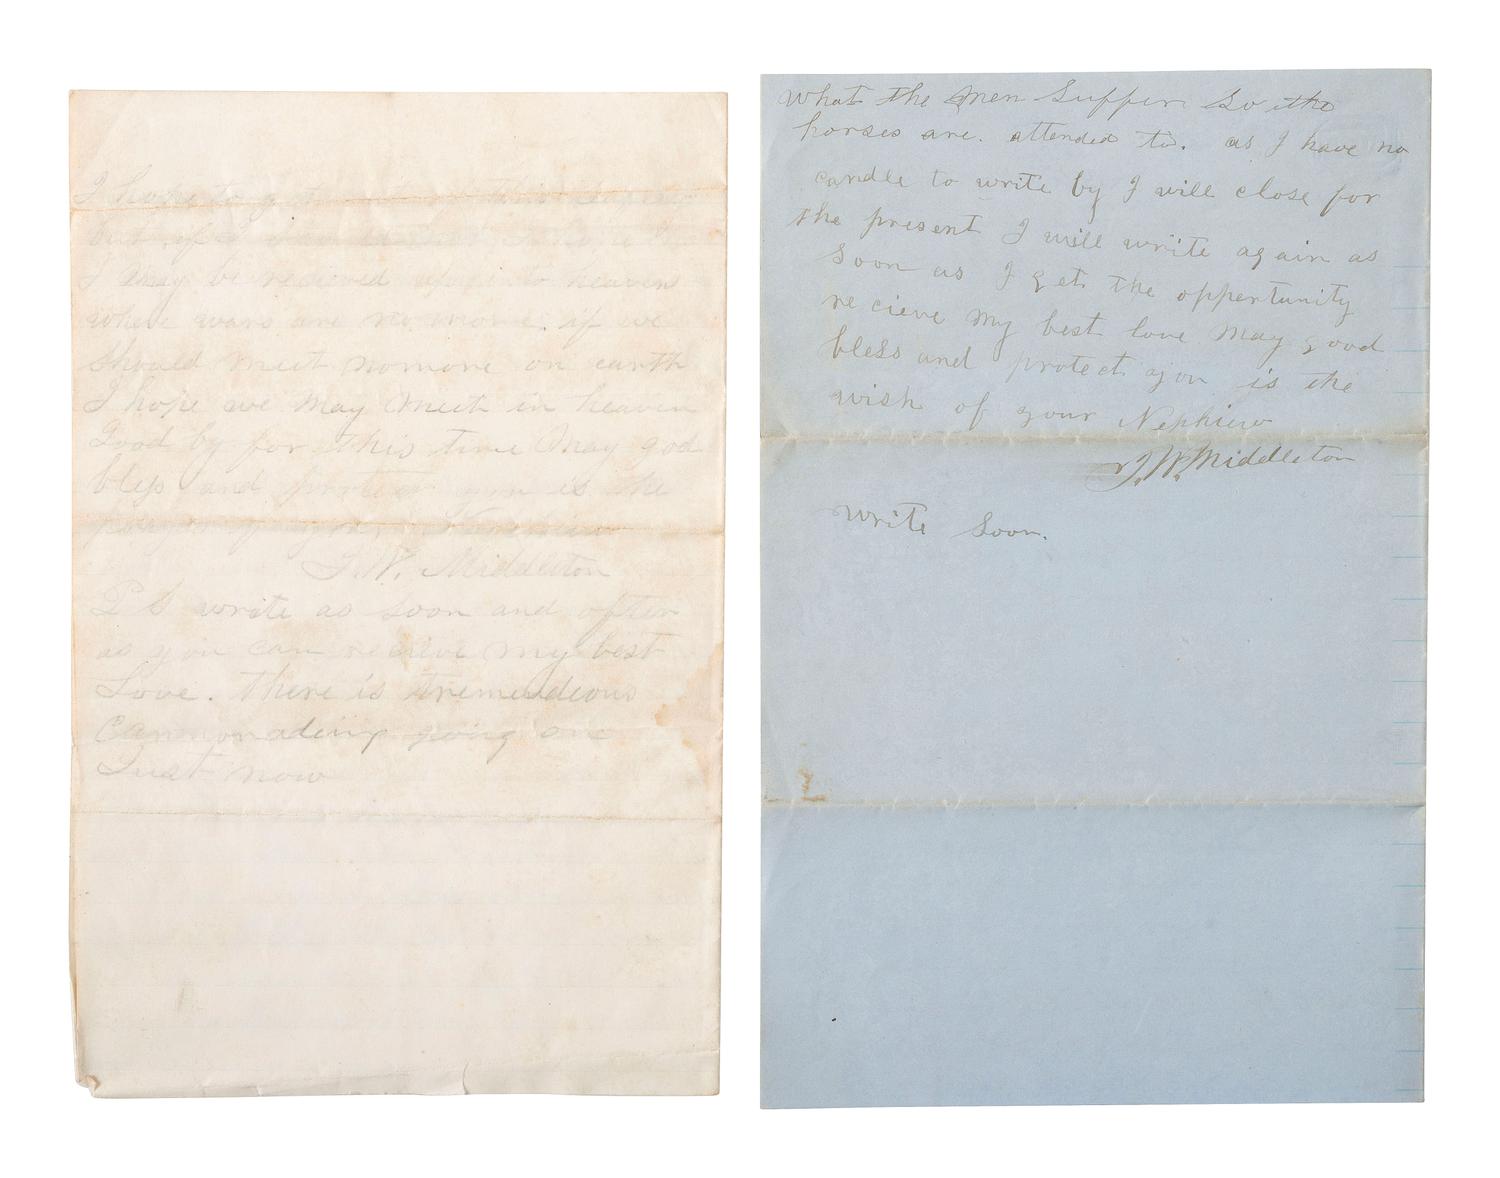 I hope to get
but if I
I may be recieved up into heaven
where wars are no more. if we
should meet nomore on earth
I hope we may meet in heaven
Good by for this time may god
bless and protect you is the
prayer of your Nephiew
J. W. Middleton
P S write as soon and often
as you can recieve my best
Love. there is tremendeous
Cannonading going one
Just now
what the men Suffer So the
horses are. attended to. as I have no
candle to write by I will close for
the present I will write again as
Soon as I get the oppertunity
re cieve my best love may good
bless and protect you is the
wish of your Nephiew
J. W. Middleton
write Soon.